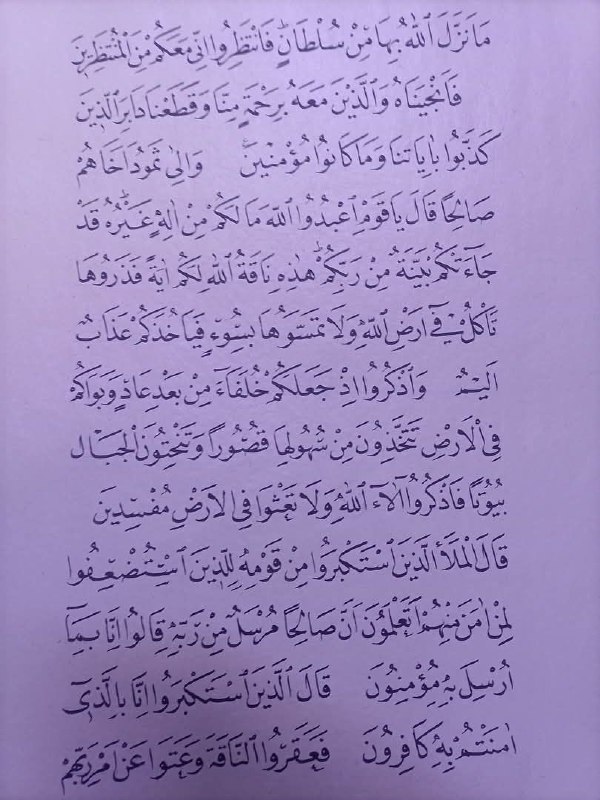 مَا نَزَّلَ اللّٰهُ بِهَا مِنْ سُلْطَانٍ فَانْتَظِرُوا اِنّ۪ي مَعَكُمْ مِنَ الْمُنْتَظِر۪ينَ
فَاَنْجَيْنَاهُ وَالَّذ۪ينَ مَعَهُ بِرَحْمَةٍ مِنَّا وَقَطَعْنَا دَابِرَ الَّذ۪ينَ
كَذَّبُوا بِاٰيَاتِنَا وَمَا كَانُوا مُؤْمِن۪ينَ وَاِلٰى ثَمُودَ اَخَاهُمْ
صَالِحًا قَالَ يَا قَوْمِ اعْبُدُوا اللّٰهَ مَا لَكُمْ مِنْ اِلٰهٍ غَيْرُهُ قَدْ
جَٓاءَتْكُمْ بَيِّنَةٌ مِنْ رَبِّكُمْ هٰذِه۪ نَاقَةُ اللّٰهِ لَكُمْ اٰيَةً فَذَرُوهَا
تَأْكُلْ ف۪ٓي اَرْضِ اللّٰهِ وَلَا تَمَسُّوهَا بِسُٓوءٍ فَيَأْخُذَكُمْ عَذَابٌ
اَل۪يمٌ وَاذْكُرُٓوا اِذْ جَعَلَكُمْ خُلَفَٓاءَ مِنْ بَعْدِ عَادٍ وَبَوَّاَكُمْ
فِي الْاَرْضِ تَتَّخِذُونَ مِنْ سُهُولِهَا قُصُورًا وَتَنْحِتُونَ الْجِبَالَ
بُيُوتًا فَاذْكُرُٓوا اٰلَٓاءَ اللّٰهِ وَلَا تَعْثَوْا فِي الْاَرْضِ مُفْسِد۪ينَ
قَالَ الْمَلَاُ الَّذ۪ينَ اسْتَكْبَرُوا مِنْ قَوْمِه۪ لِلَّذ۪ينَ اسْتُضْعِفُوا
لِمَنْ اٰمَنَ مِنْهُمْ اَتَعْلَمُونَ اَنَّ صَالِحًا مُرْسَلٌ مِنْ رَبِّه۪ قَالُٓوا اِنَّا بِمَٓا
اُرْسِلَ بِه۪ مُؤْمِنُونَ قَالَ الَّذ۪ينَ اسْتَكْبَرُٓوا اِنَّا بِالَّذ۪ٓي
اٰمَنْتُمْ بِه۪ كَافِرُونَ فَعَقَرُوا النَّاقَةَ وَعَتَوْا عَنْ اَمْرِ رَبِّهِمْ